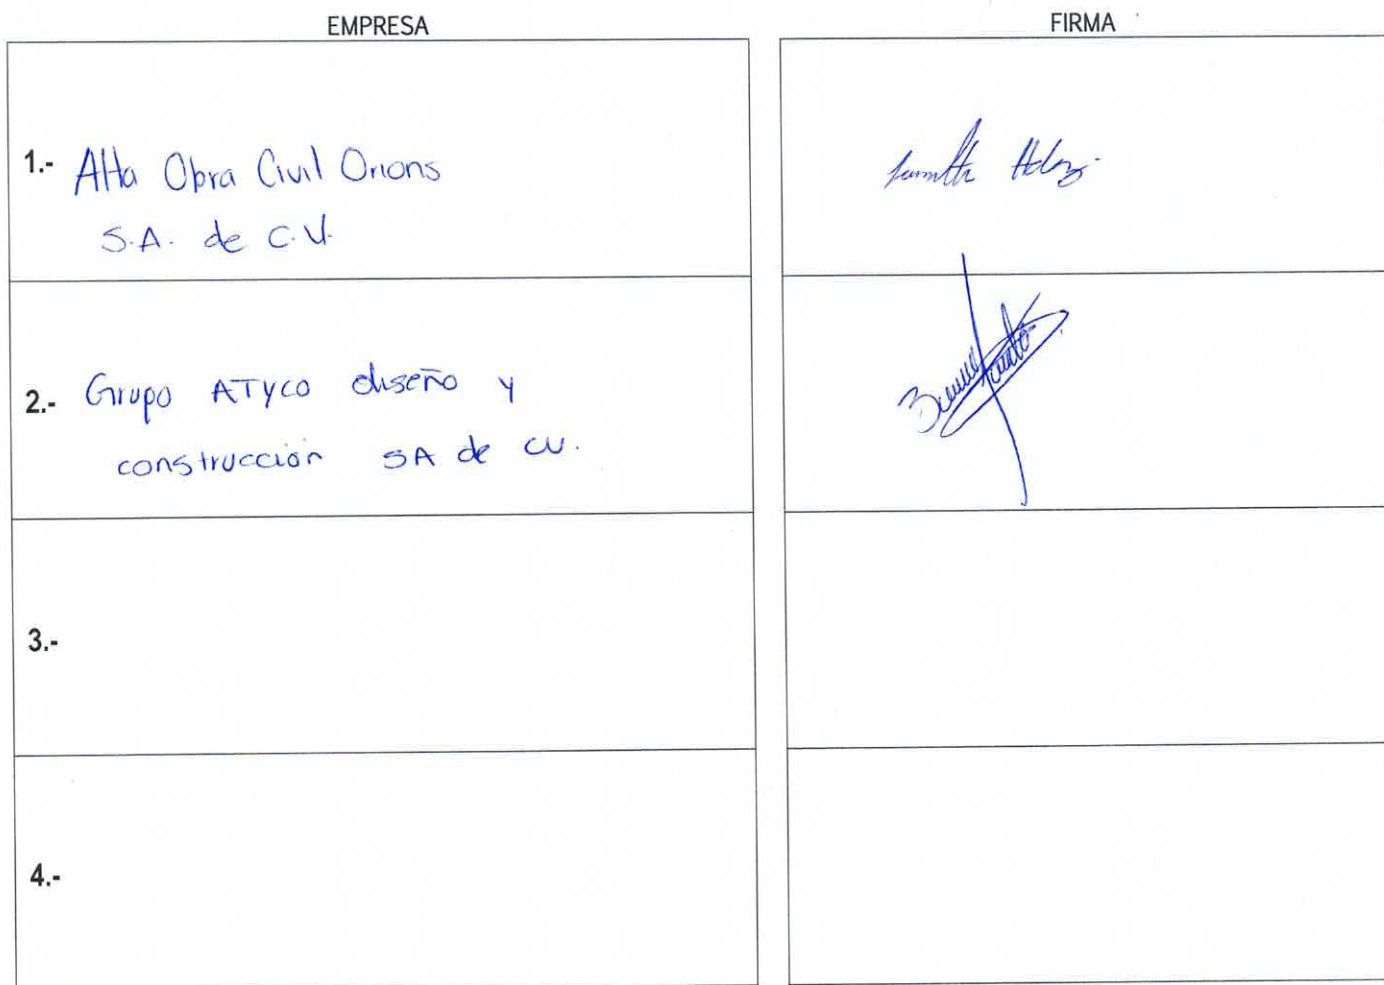 EMPRESA
FIRMA
1.- Alta Obra Civil Orions
S.A. de C.V.
2.- Grupo ATYCO diseño y
construcción SA de CV.
3.-
4.-